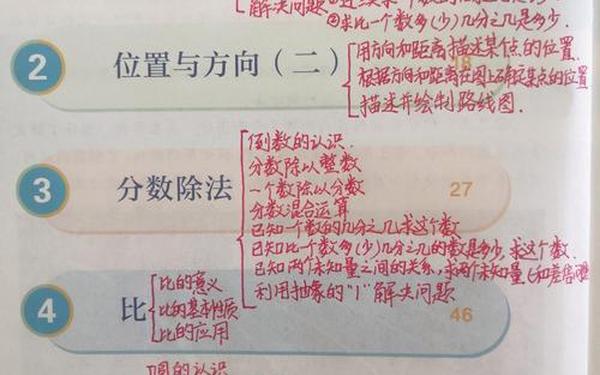 解决问题
②求比一个数多(少)几分之几是多少.
2 位置与方向(二) 18
用方向和距离描述某个点的位置.
根据方向和距离在图上确定某点的位置
描述并绘制路线图.
3 分数除法 27
倒数的认识.
分数除以整数
一个数除以分数
分数混合运算
已知一个数的几分之几,求这个数
已知比一个数多(少)几分之几的数是多少,求这个数.
已知两个未知量之间的关系,求两个未知量(和差倍问题
利用抽象的"1"解决问题
4 比 46
比的意义
比的基本性质
比的应用
圆的认识